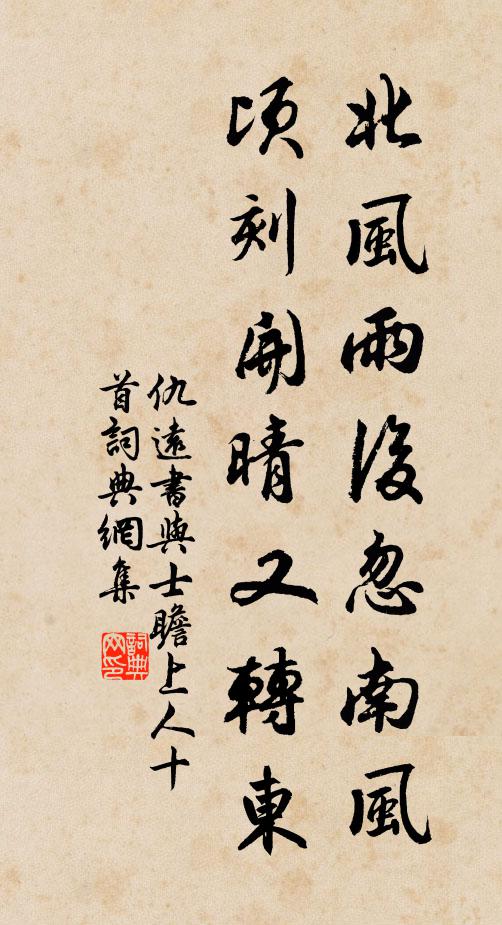 北風雨後忽南風
頃刻開晴又轉東
仇遠書與士瞻上人十
首詞典網集
詞典
网印